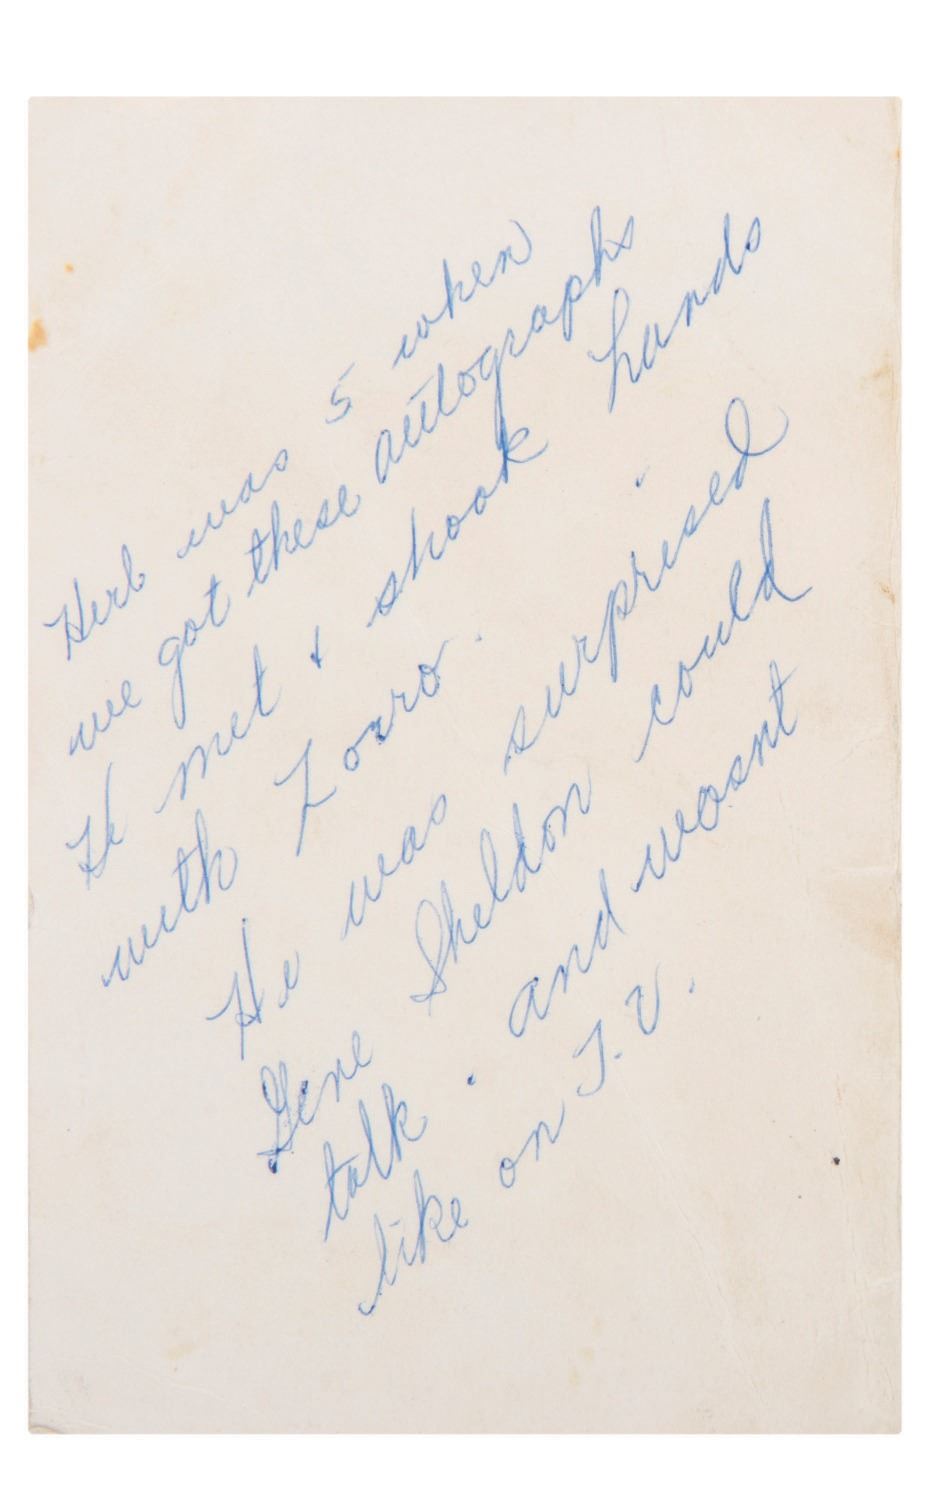 Herb was 5 when
we got these autographs
He met + shook hands
with Zorro.
He was surprised
Gene Sheldon could
talk. and wasnt
like on T.V.